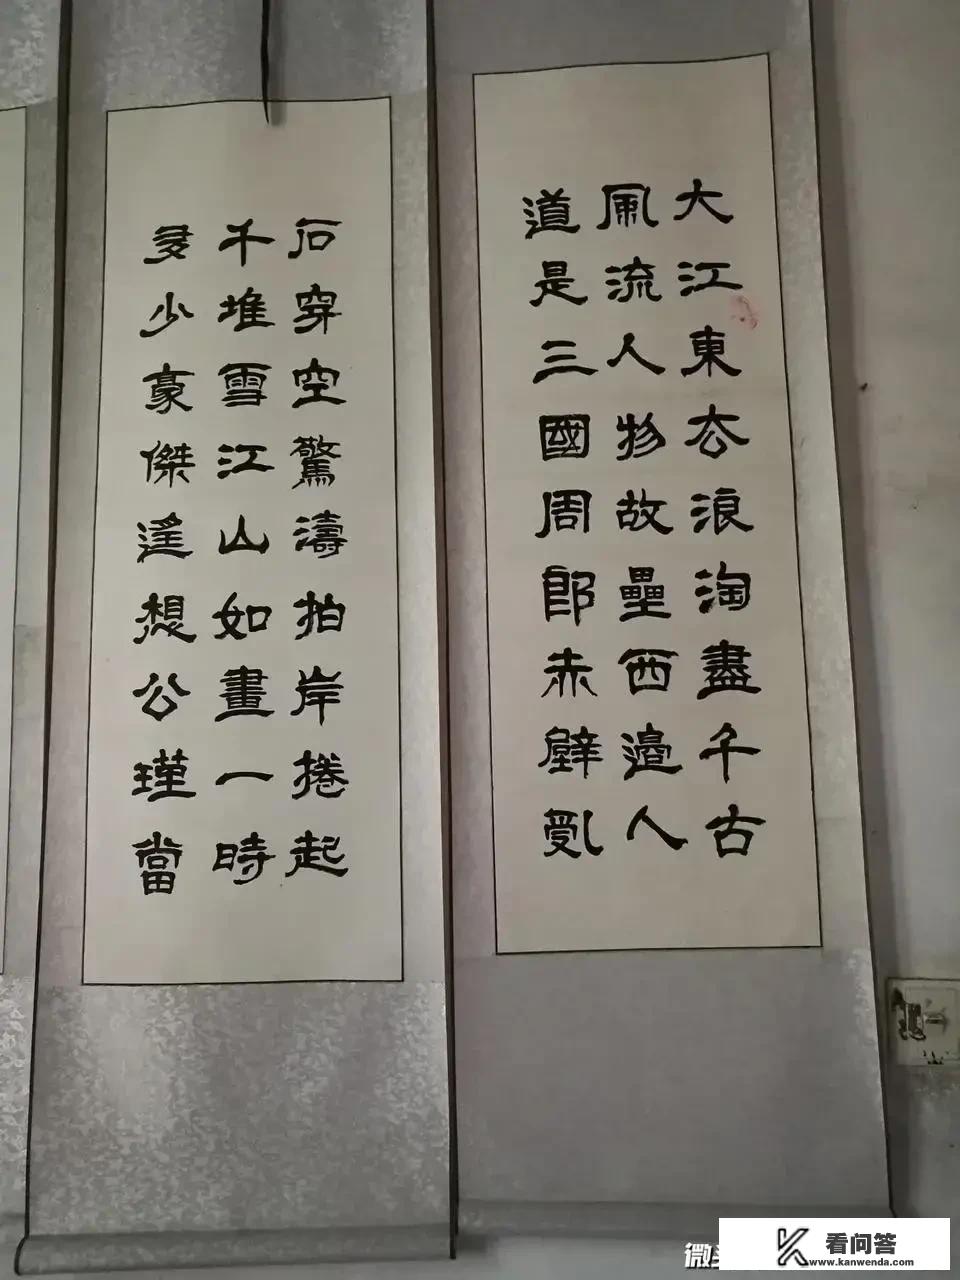 大江東去浪淘盡千古
風流人物故壘西邊人
道是三國周郎赤壁亂
石穿空驚濤拍岸捲起
千堆雪江山如畫一時
多少豪傑遙想公瑾當
微
看问答
www.kanwenda.com